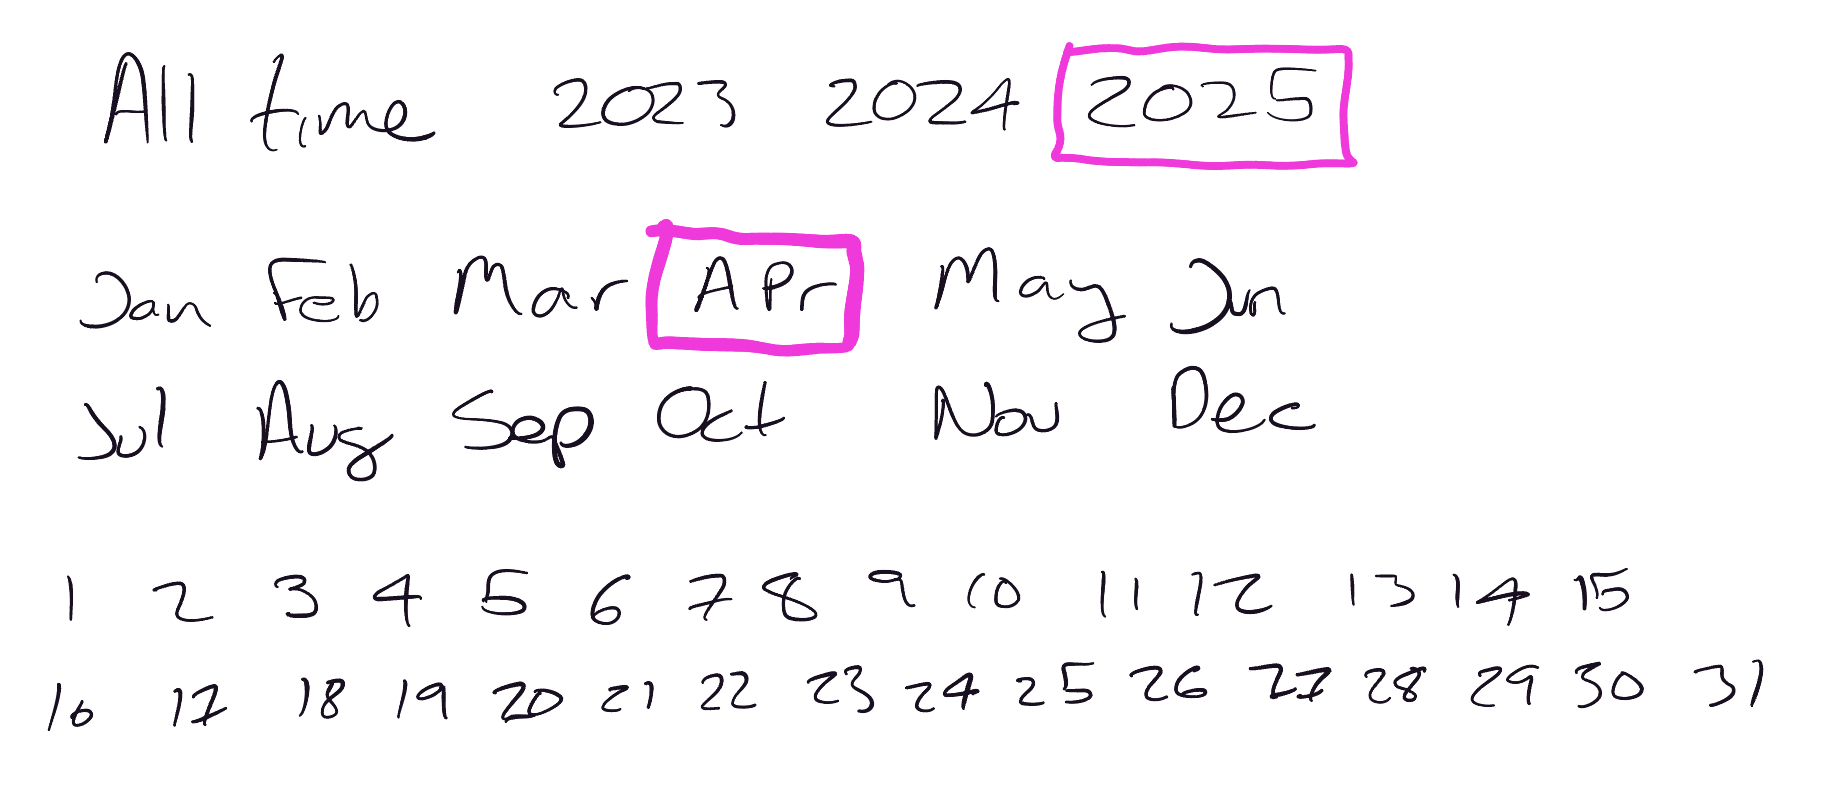 All time 2023 2024 2025
Jan Feb Mar APr May Jun
Jul Aug Sep Oct Nov Dec
1 2 3 4 5 6 7 8 9 10 11 12 13 14 15
16 17 18 19 20 21 22 23 24 25 26 27 28 29 30 31